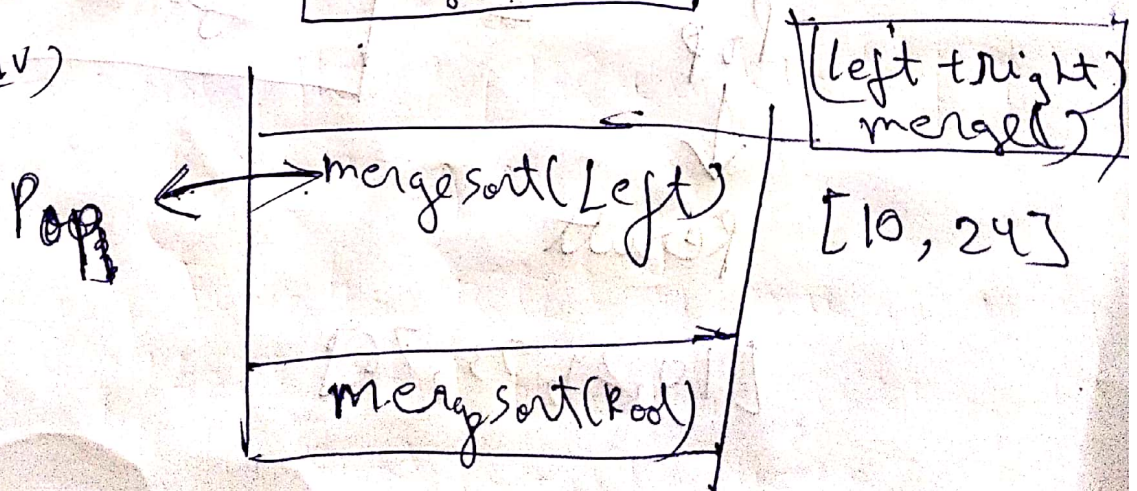 (left + right)
merged)
mergesort(Left)
Pop
[10, 24]
mergsort(Root)